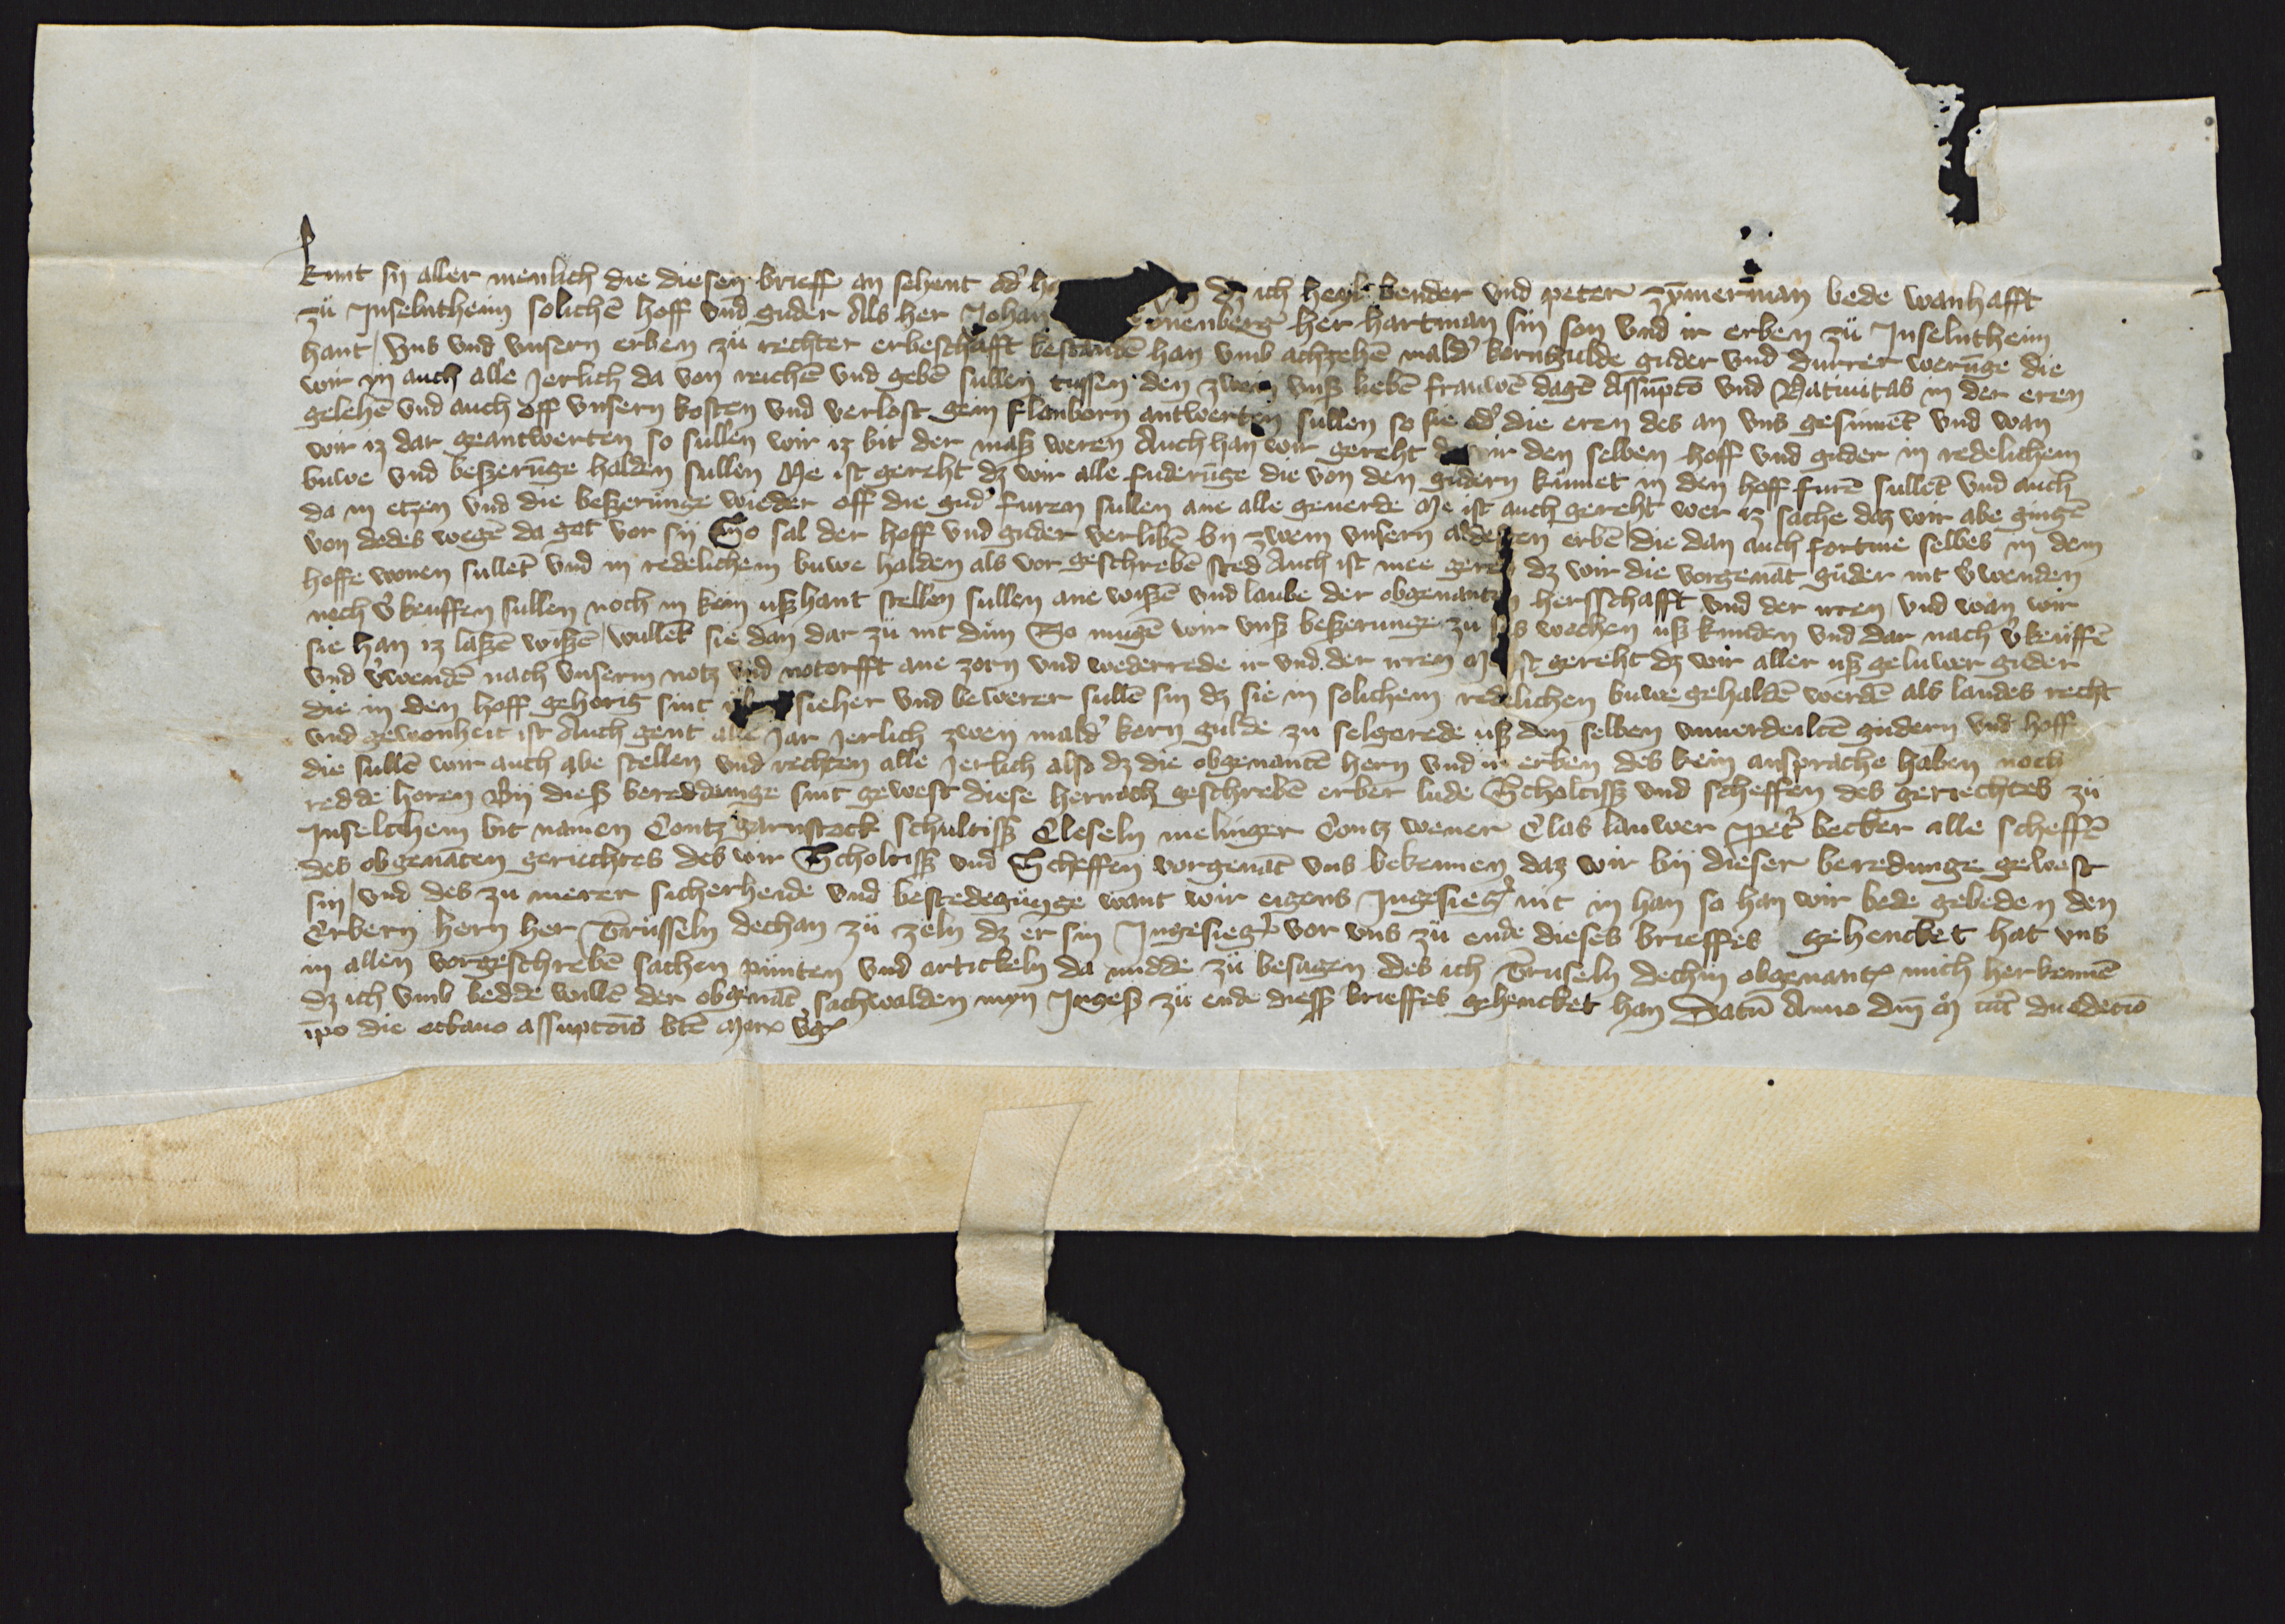 Kunt sy aller menlich die diesen brieff an sehent od' dz ich heyl bender vnd peter zȳmerman bede wanhafft
zü Jnselntheim solichē hoff vnd guder Als her Johan her hartman sin son vnd ir erben zü Jnselntheim
hant vns vnd vnsern erben zü rechter erbeschafft bestandē han vmb achzehē mald' korngulde guder vnd durrer werūge die
wir yn auch alle Jerlich da von reichē vnd gebē sullen tussen den zwein vnß liebē frauwē dagē Assūpcō vnd Natiuitas in der eren
gelehē vnd auch off vnsern kosten vnd verlost gein flanborn antwerten sullen so sie od' die eren des an vns gesinnēt vnd wan
wir iz dar geantwerten so sullen wir iz bit der maß weren Auch han wir gereht wir den selben hoff vnd guder in redelichem
buwe vnd beßerūge halden sullen Me ist gereht dz wir alle fuderūge die von den gudern kūmet in den hoff furē sullēt vnd auch
da in etzen vnd die beßerunge wieder off die gud' furen sullen ane alle geuerde Me ist auch gereht wer iz sache daz wir abe gingē
von dodes wegē da got vor sy So sal der hoff vnd guder verlibē by zwein vnsern aldesten erbē die dan auch fortme selbes in dem
hoffe wonen sullēt vnd in redelichem buwe halden als vor geschrebē sted Auch ist mee gere dz wir die vorgenāt guder nit v'wenden
noch v'keuffen sullen noch in kein ußhant stellen sullen ane wißē vnd laube der obgenanten hersschafft vnd der irren vnd wan wir
sie han iz laßē wißē wullēt sie dan dar zü nit dün So mugē wir vnß beßerunge zu wochen uß kunden vnd dar nach v'keüffē
vnd v'wendē nach vnserm notz vnd notorfft ane zorn vnd wederrede ir vnd der irren Me ist gereht dz wir aller uß geluwer guder
die in den hoff gehorig sint sieher vnd bewerer sullē sin dz sie in solichem redelichen buwe gehaldē werdē als landes recht
vnd gewonheit ist Auch gent alle Jar Jerlich zwen mald' korn gulde zu selgerede uß den selben vnuerdeiltē gudern vnd hoff
die sullē wir auch abe stellen vnd rechten alle Jerlich also dz die obgenantē hern vnd ir erben des kein ansprache haben noch
redde horen By dieß bereddunge sint gewest diese hernoch geschrebē erber lude Scholtiß vnd scheffen des geriechtes zü
Jnselthem bit namen Contz garnstock schultiß Cleseln melinger Contz wener Clas lauwer Pet' becker alle scheffē
des obgenāten geriechtes des wir Scholtiß vnd Scheffen vorgenāt vns bekennen daz wir by dieser beredunge gewest
sin vnd des zu merer sicherheide vnd bestedegünge want wir eigens Jngesieg' nit in han so han wir bede gebeden den
Erbern hern her Trusseln dechan zü zeln dz er sin Jngesieg' vor vns zü ende dieses brieffes gehencket hat vns
in allen vorgeschrebē sachen pünten vnd artickeln da midde zü besagen des ich Truseln dechin obgenant mich herkennē
dz ich vmb bedde willē der obgenāt sachwalden myn Jngeß zü ende dieß brieffes gehencket han Datū Anno dm̄ duodecīo
ipo die octaua assūptōis btē